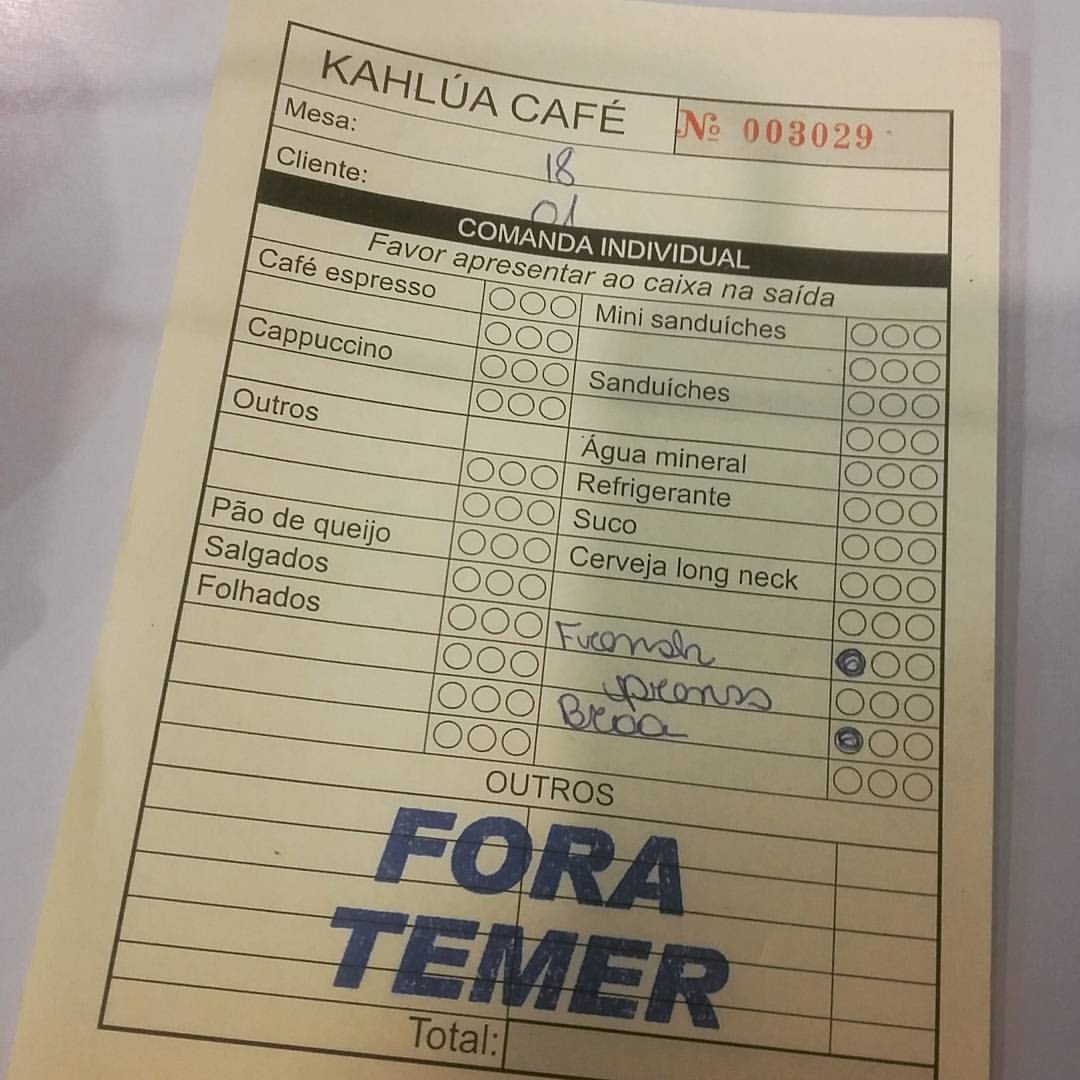 KAHLÚA CAFÉ
Nº 003029
Mesa: 18
Cliente: 01
COMANDA INDIVIDUAL
Favor apresentar ao caixa na saída
Café espresso
Cappuccino
Outros
Pão de queijo
Salgados
Folhados
Mini sanduíches
Sanduíches
Água mineral
Refrigerante
Suco
Cerveja long neck
Broa
OUTROS
FORA
TEMER
Total: